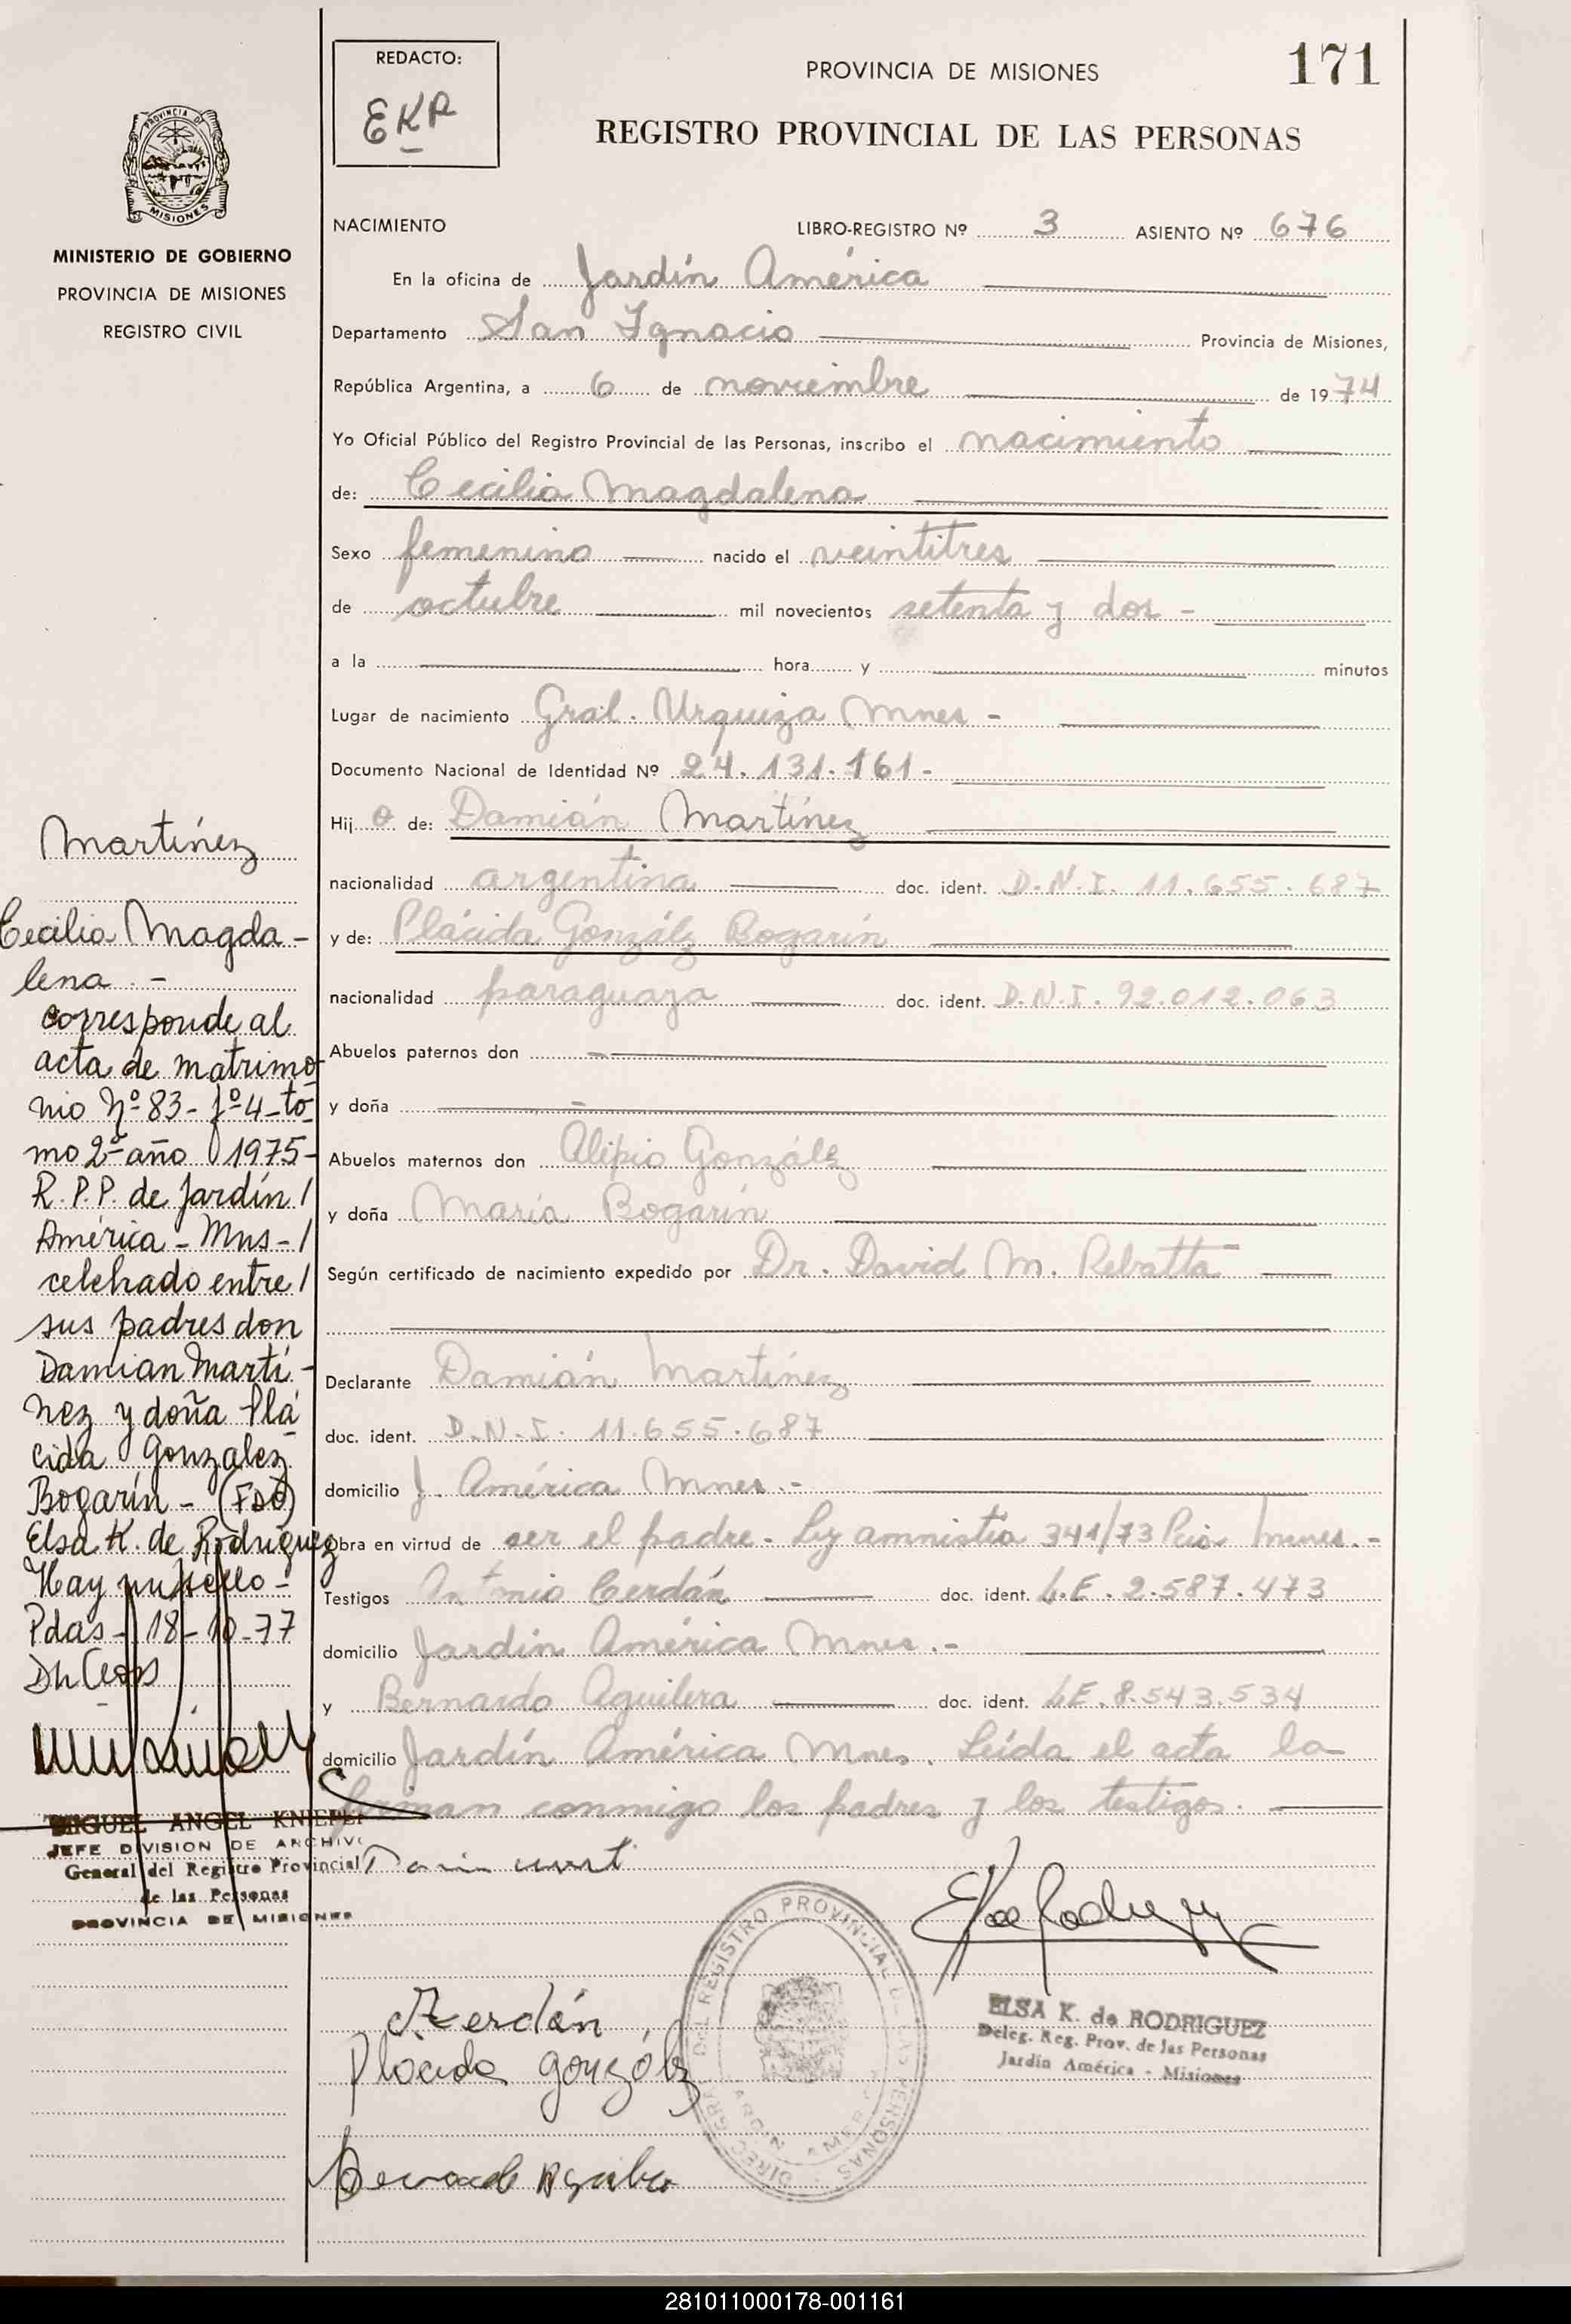 171
REDACTO:
EKR
PROVINCIA DE MISIONES
REGISTRO PROVINCIAL DE LAS PERSONAS
MINISTERIO DE GOBIERNO
PROVINCIA DE MISIONES
REGISTRO CIVIL
NACIMIENTO LIBRO-REGISTRO Nº 3 ASIENTO Nº 676
En la oficina de Jardín América
Departamento San Ignacio Provincia de Misiones,
República Argentina, a 6 de noviembre de 1974
Yo Oficial Público del Registro Provincial de las Personas, inscribo el nacimiento
de: Cecilia Magdalena
Sexo femenino nacido el veintitres
de octubre mil novecientos setenta y dos -
a la hora y minutos
Lugar de nacimiento Gral. Urquiza Mnes -
Documento Nacional de Identidad Nº 24.131.161-
Hij a de: Damián Martínez
nacionalidad argentina doc. ident. D.N.I. 11.655.687
y de: Plácida Gonzálz Bogarín
nacionalidad paraguaya doc. ident. D.N.I. 92.012.063
Abuelos paternos don -
y doña -
Abuelos maternos don Alipio Gonzálz
y doña María Bogarín
Según certificado de nacimiento expedido por Dr. David M. Rebatta
Declarante Damián Martínez
doc. ident. D.N.I. 11.655.687
domicilio J. América Mnes.-
Obra en virtud de ser el padre- Ley amnistía 341/73 Pcia Mnes.-
Testigos Antonio Cerdán doc. ident. L.E. 2.587.473
domicilio Jardín América Mnes.-
y Bernardo Aguilera doc. ident. LE.8.543.534
domicilio Jardín América Mnes. Leída el acta la
firman conmigo los padres y los testigos.
Martínez
Cecilia Magda-
lena.-
corresponde al
acta de matrimo-
nio Nº 83- fº 4-to-
mo 2º año 1975-
R.P.P. de Jardín/
América-Mns-/
celebrado entre/
sus padres don
Damian Martí-
nez y doña Plá
cida Gonzalez
Bogarín-(FDO)
Elsa K. de Rodríguez
Hay un sello-
Pdas-18-10-77
MIGUEL ANGEL
JEFE DIVISION DE ARCHIVO
General del Registro Provincial
de las Personas
PROVINCIA DE MISIONES
Zerdán
Placida Gonzálz
DIREC. GRAL. DEL REGISTRO PROVINCIAL DE LAS PERSONAS
JARDIN AMERICA
ELSA K. de RODRIGUEZ
Deleg. Reg. Prov. de las Personas
Jardín América - Misiones
281011000178-001161